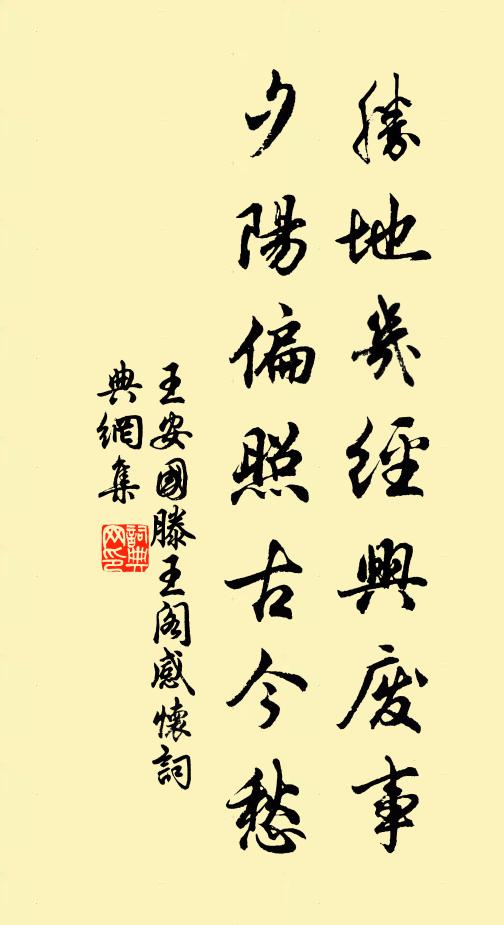 勝地幾經興廢事
夕陽偏照古今愁
王安國滕王阁感懷詞
典網集
詞典網印